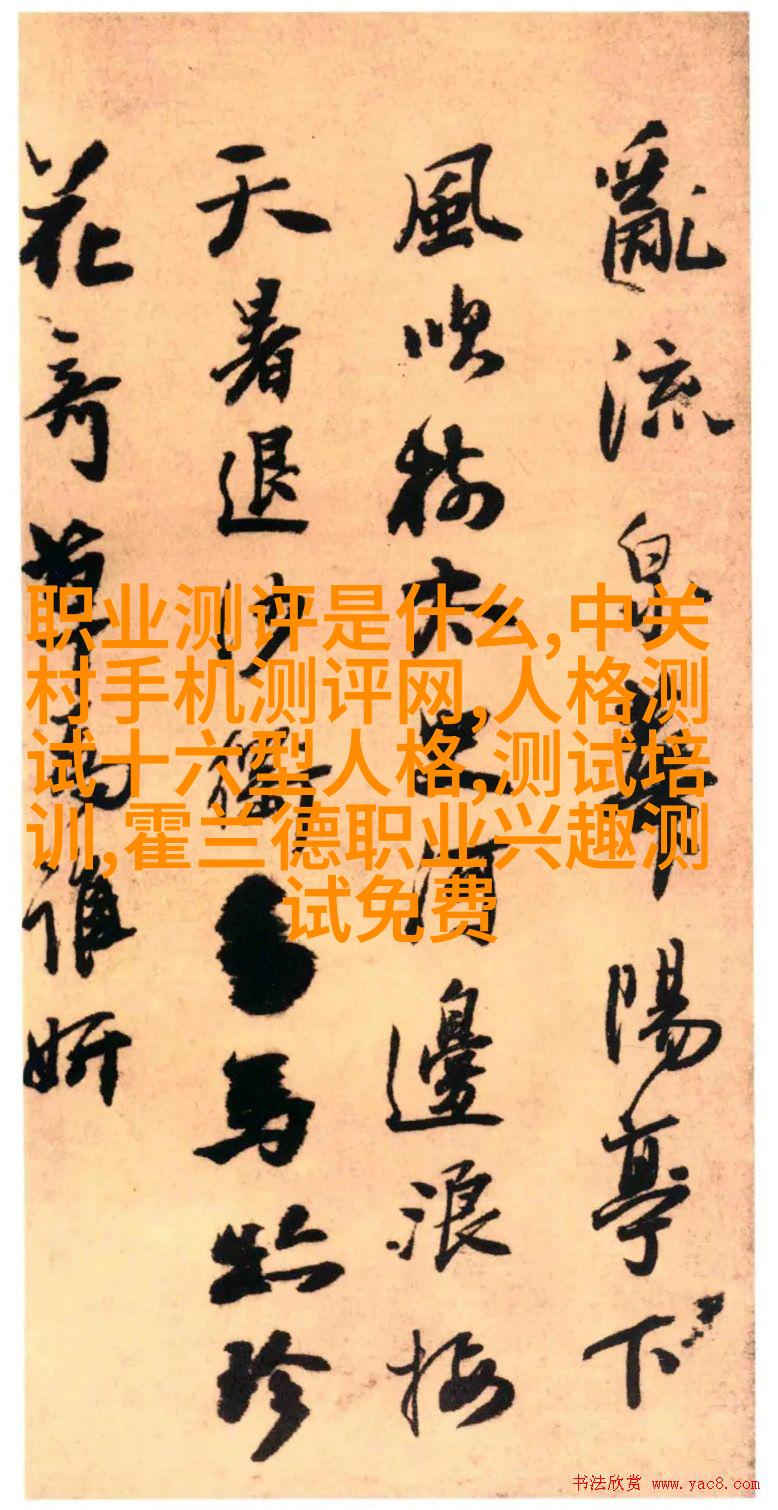 亂流泉華陽亭下
風吹樹河邊浪接
天暑退馬珍
花奇草誰妍
职业测评是什么,中关
村手机测评网,人格测
试十六型人格,测试培
训,霍兰德职业兴趣测
试免费
书法欣赏 www.yac8.com